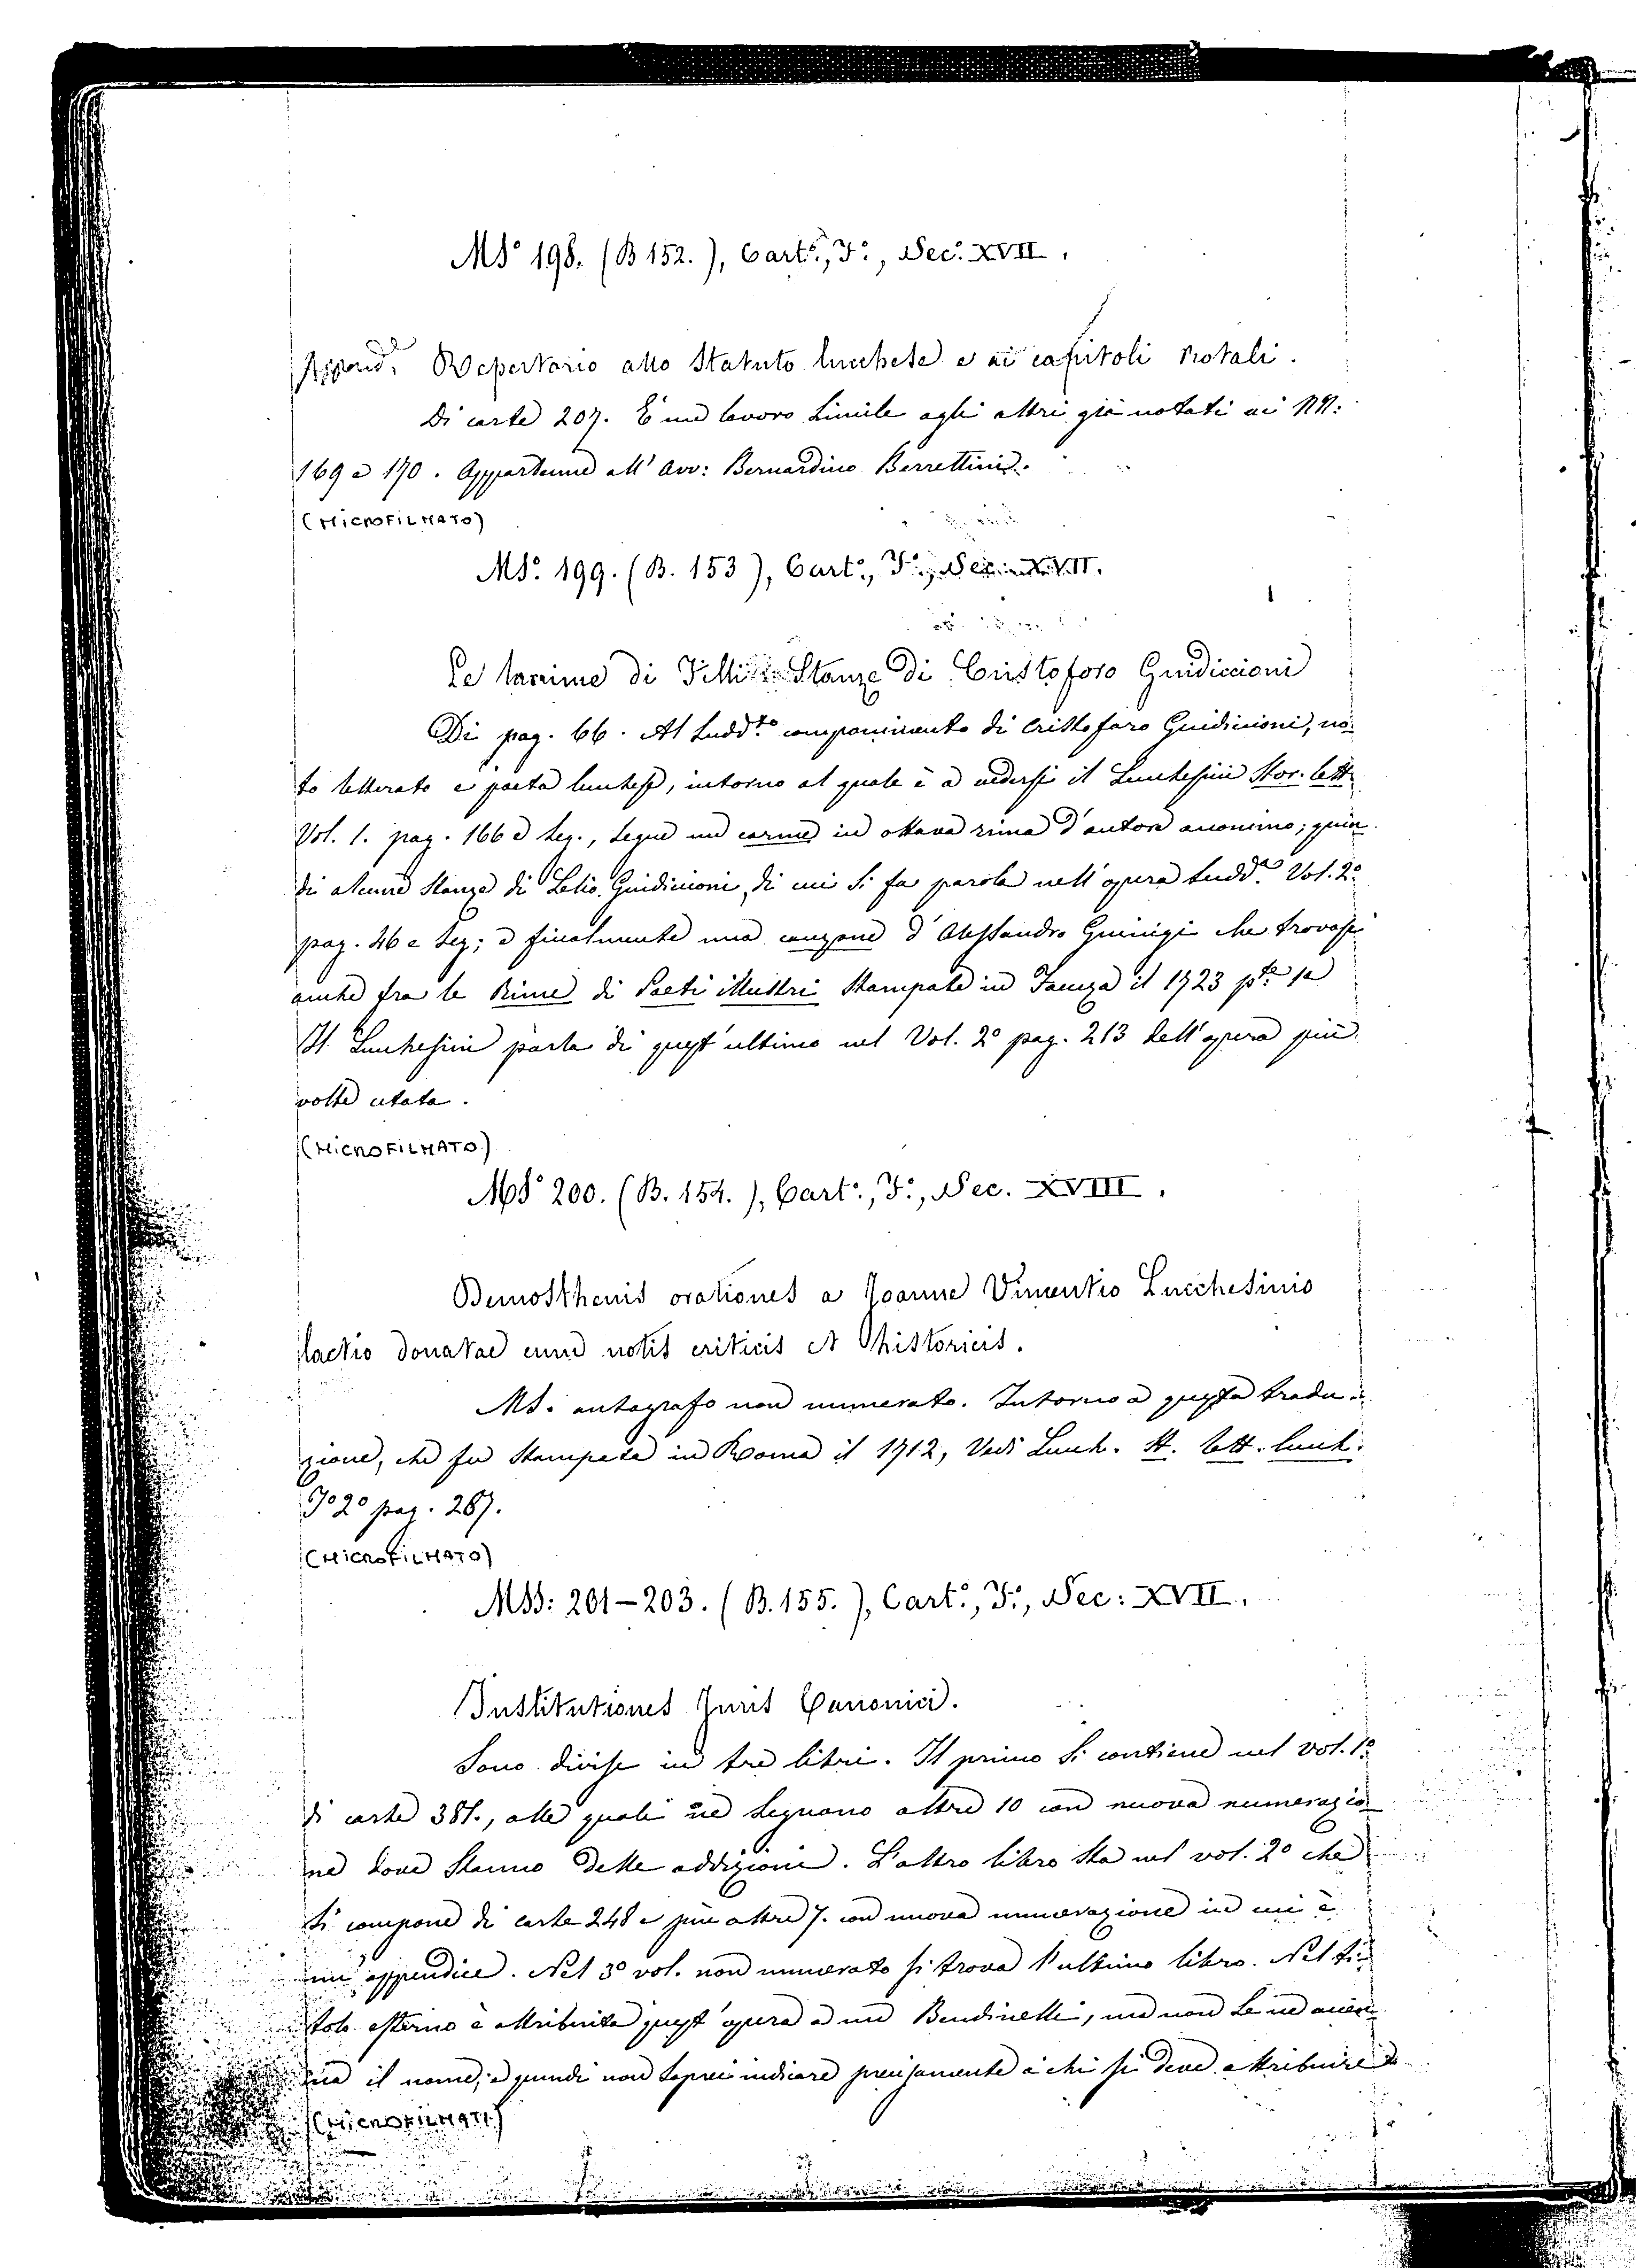 MS° 198. (B 152.), Cart°., F°., Sec°. XVII.
Append. Repertorio allo Statuto lucchese e ai capitoli rotali.
Di carte 207. È un lavoro simile agli altri già notati ai NN:
169 e 170. Appartenne all' Avv: Bernardino Berrettini.
(MICROFILMATO)
MS°. 199. (B. 153), Cart°., F°., Sec. XVII.
Le lacrime di Filli Stanze di Cristoforo Guidiccioni
Di pag. 66. Al sudd.to componimento di Cristoforo Guidiccioni, no-
to letterato e poeta lucchese, intorno al quale è a vedersi il Lucchesini Stor. lett.
Vol. 1. pag. 166 e seg., segue un carme in ottava rima d'autore anonimo; quin-
di alcune stanze di Lelio Guidiccioni, di cui si fa parola nell'opera sudd.a Vol. 2°
pag. 46 e seg; e finalmente una canzone d'Alessandro Guinigi che trovasi
anche fra le Rime di Poeti illustri stampate in Faenza il 1723 p.te 1a
Il Lucchesini parla di quest'ultimo nel Vol. 2° pag. 213 dell'opera più
volte citata.
(MICROFILMATO)
MS° 200. (B. 154.), Cart°., F°., Sec. XVIII.
Demosthenis orationes a Joanne Vincentio Lucchesinio
lactio donatae cum notis criticis et historicis.
MS. autografo non numerato. Intorno a questa tradu-
zione, che fu stampata in Roma il 1712, Vedi Lucch. St. lett. lucch.
T° 2° pag. 267.
(MICROFILMATO)
MSS: 201-203. (B. 155.), Cart°., F°., Sec: XVII.
Institutiones Juris Canonici.
Sono divise in tre libri. Il primo si contiene nel vol. 1°
di carte 381., alle quali ne seguono altre 10 con nuova numerazio-
ne dove stanno delle addizioni. L'altro libro sta nel vol. 2° che
si compone di carte 248 e più altre 7. con nuova numerazione in cui è
un' appendice. Nel 3° vol. non numerato si trova l'ultimo libro. Nel ti-
tolo esterno è attribuita quest'opera a un Bendinelli, ma non se ne accen-
na il nome, e quindi non saprei indicare precisamente a chi si deve attribuire
(MICROFILMATI)